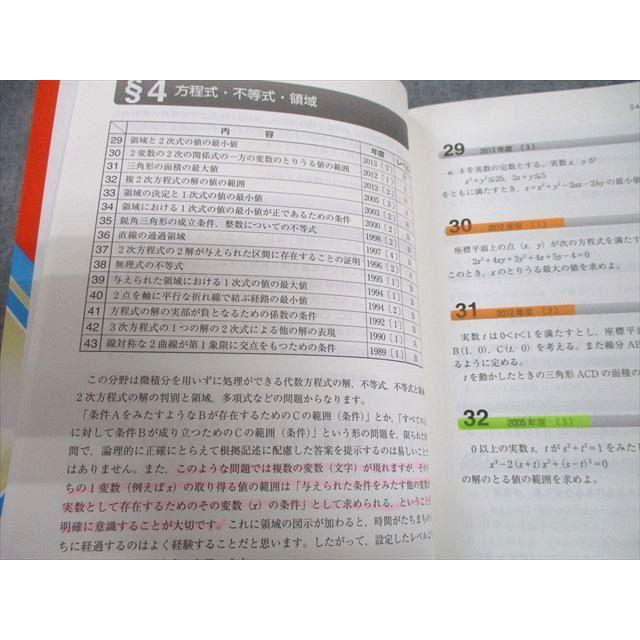 §4 方程式・不等式・領域
内容 年度 レベル
29 領域と2次式の値の最小値 2013〔3〕
30 2変数の2次の関係式の一方の変数のとりうる値の範囲 2012〔1〕
31 三角形の面積の最大値 2012〔2〕
32 複2次方程式の解の値の範囲 2005〔3〕
33 領域の決定と1次式の値の最小値 2003〔2〕
34 領域における1次式の値の最小値が正であるための条件 2000〔2〕
35 鋭角三角形の成立条件，整数についての不等式 1998〔2〕
36 直線の通過領域 1997〔4〕
37 2次方程式の2解が与えられた区間に存在することの証明 1996〔2〕
38 無理式の不等式 1995〔1〕
39 与えられた領域における1次式の値の最大値 1994〔1〕
40 2点を軸に平行な折れ線で結ぶ経路の最小値 1994〔2〕
41 方程式の解の実部が負となるための係数の条件 1992〔1〕 B
42 3次方程式の1つの解の2次式による他の解の表現 1990〔1〕 B
43 線対称な2曲線が第1象限に交点をもつための条件 1989〔1〕 B
この分野は微積分を用いずに処理ができる代数方程式の解，不等式，不等式と領域
2次方程式の解の判別と領域，多項式などの問題からなります。
「条件AをみたすようなBが存在するためのCの範囲（条件）」とか，「すべての
に対して条件Bが成り立つためのCの範囲（条件）」という形の問題を，限られた
間で，論理的に正確にとらえて根拠記述に配慮した答案を提示するのは易しいこと
はありません。また，このような問題では複数の変数（文字）が現れますが，その
ちの1変数（例えばx）の取り得る値の範囲は「与えられた条件をみたす他の変数が
実数として存在するためのその変数（x）の条件」として求められる，ということ
明確に意識することが大切です。これに領域の図示が加わると，時間がたちまちの
ちに経過するのはよく経験することだと思います。したがって，設定したレベルよ
29 2013年度〔3〕
a, bを実数の定数とする。実数x, yが
x²+y²≦25, 2x+y≦5
をともに満たすとき，z=x²+y²-2ax-2byの最小値
30 2012年度〔1〕
座標平面上の点（x, y）が次の方程式を満た
2x²+4xy+3y²+4x+5y-4=0
このとき，xのとりうる最大の値を求めよ。
31 2012年度〔2〕
実数tは0<t<1を満たすとし，座標平
B(1, 0), C(t, 0)を考える。また線分AB
るように定める。
tを動かしたときの三角形ACDの面積の
32 2005年度〔3〕
0以上の実数s, tがs²+t²=1をみたし
x⁴-2(s+t)x²+(s-t)²=0
の解のとる値の範囲を求めよ。